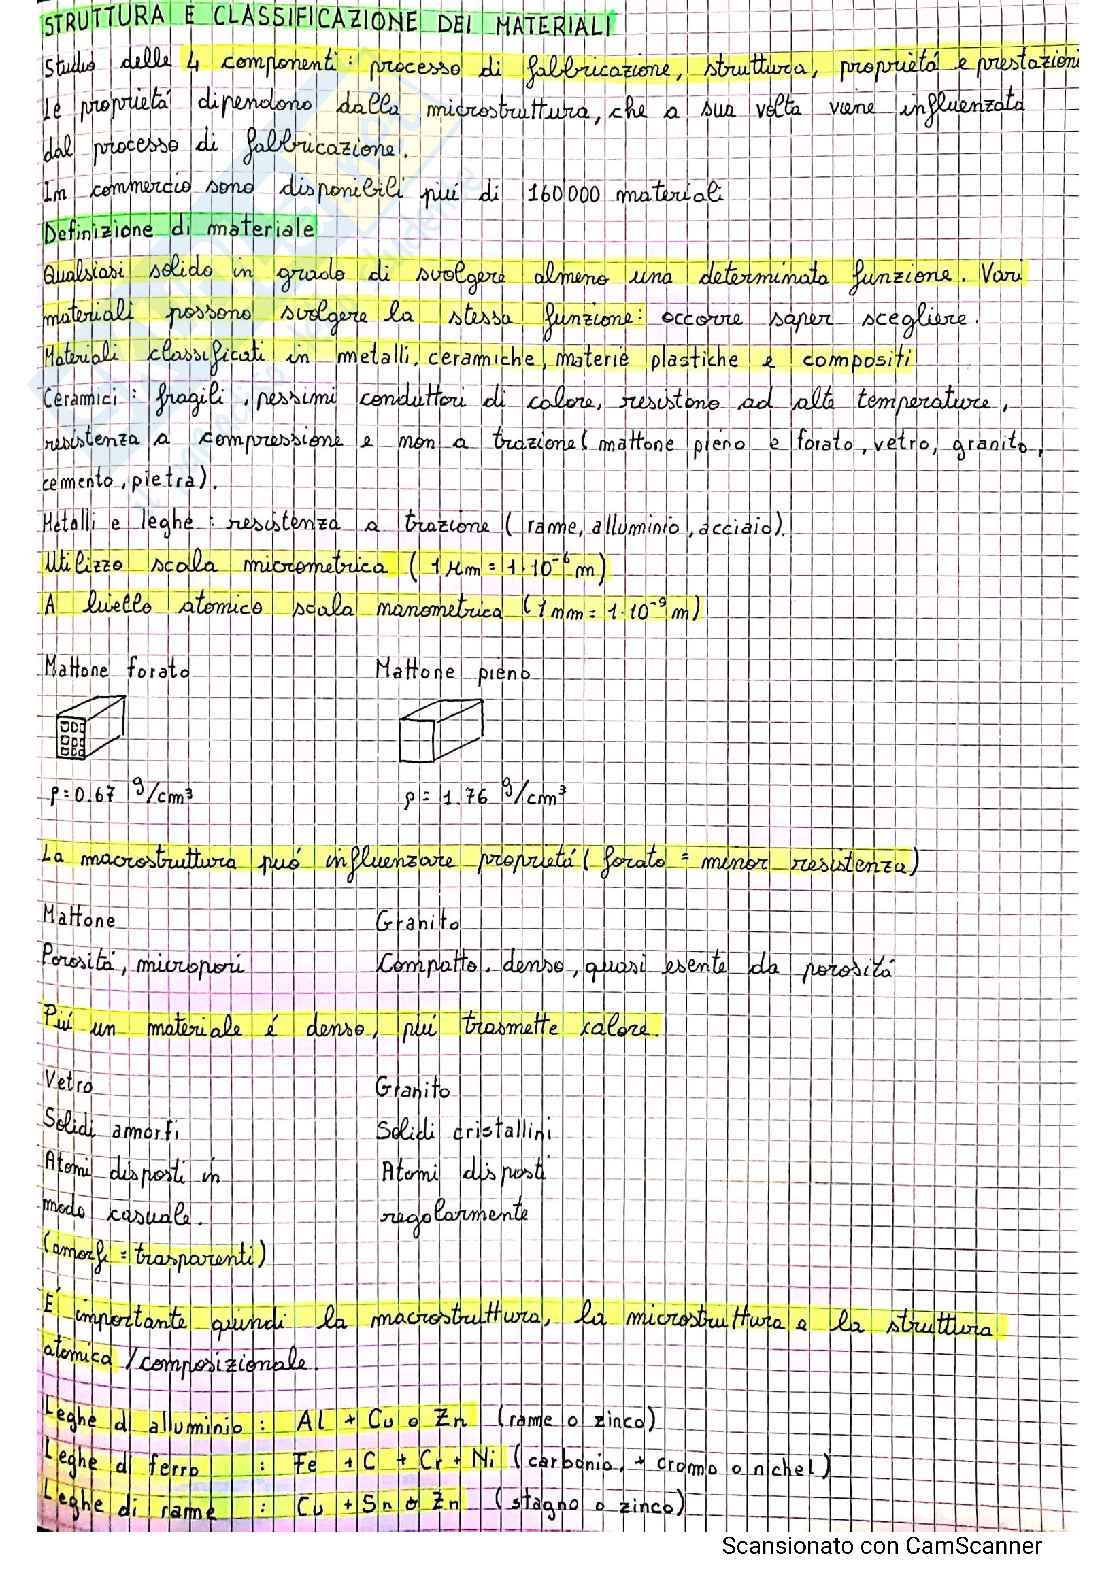 STRUTTURA E CLASSIFICAZIONE DEI MATERIALI
Studio delle 4 componenti: processo di fabbricazione, struttura, proprietá e prestazioni
Le proprietá dipendono dalla microstruttura, che a sua volta viene influenzata
dal processo di fabbricazione.
In commercio sono disponibili piú di 160000 materiali
Definizione di materiale
Qualsiasi solido in grado di svolgere almeno una determinata funzione. Vari
materiali possono svolgere la stessa funzione: occorre saper scegliere.
Materiali classificati in metalli, ceramiche, materie plastiche e compositi
Ceramici: fragili, pessimi conduttori di calore, resistono ad alte temperature,
resistenza a compressione e non a trazione (mattone pieno e forato, vetro, granito,
cemento, pietra).
Metalli e leghe: resistenza a trazione (rame, alluminio, acciaio).
Utilizzo scala micrometrica (1 μm = 1·10⁻⁶ m)
A livello atomico scala nanometrica (1 nm = 1·10⁻⁹ m)
Mattone forato Mattone pieno
ρ = 0.67 g/cm³ ρ = 1.76 g/cm³
La macrostruttura puó influenzare proprietá (forato = minor resistenza)
Mattone Granito
Porositá, micropori Compatto, denso, quasi esente da porositá
Piú un materiale é denso, piú trasmette calore.
Vetro Granito
Solidi amorfi Solidi cristallini
Atomi disposti in Atomi disposti
modo casuale. regolarmente
(amorfi = trasparenti)
E' importante quindi la macrostruttura, la microstruttura e la struttura
atomica / composizionale.
Leghe di alluminio : Al + Cu o Zn (rame o zinco)
Leghe di ferro : Fe + C + Cr + Ni (carbonio, + cromo o nichel)
Leghe di rame : Cu + Sn o Zn (stagno o zinco)
Scansionato con CamScanner